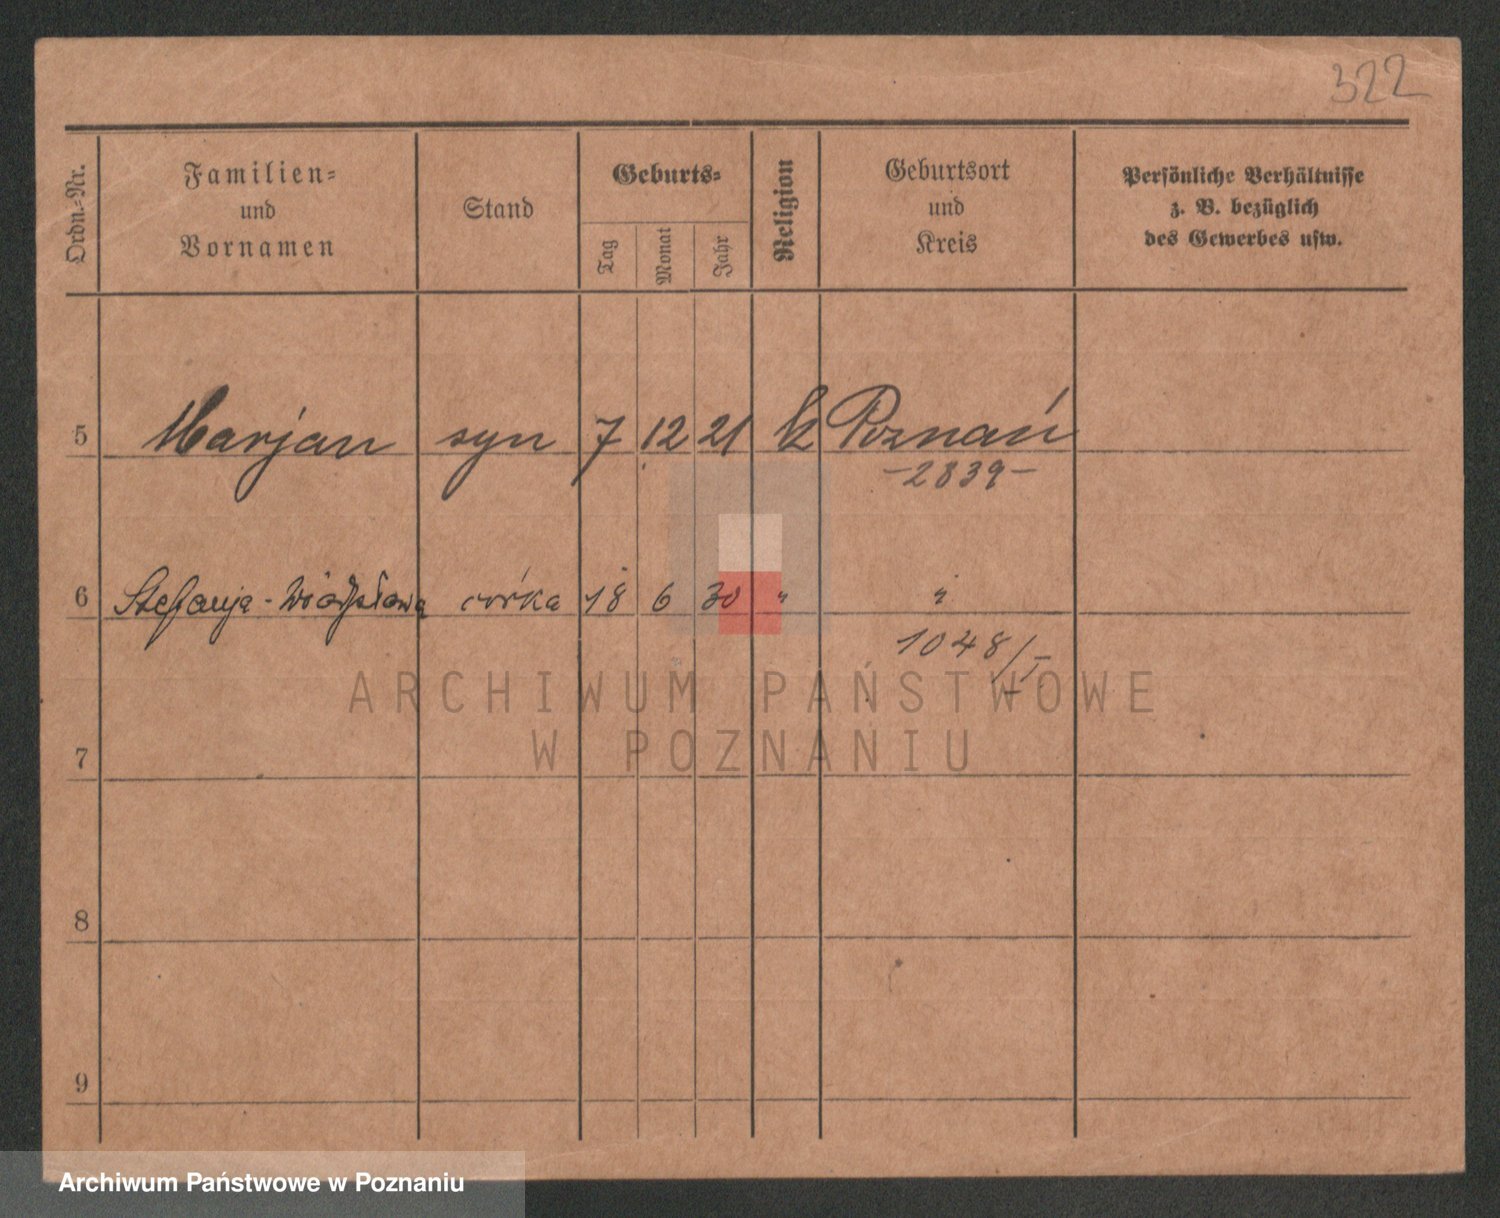 322
Ordn.-Nr. Familien- und Vornamen Stand Geburts- Tag Monat Jahr Religion Geburtsort und Kreis Persönliche Verhältnisse z. B. bezüglich des Gewerbes usw.
5 Marjan syn 7 12 21 k Poznań
-2839-
6 Stefanja- córka 18 6 30 " "
1048/I
ARCHIWUM PAŃSTWOWE
W POZNANIU
7
8
9
Archiwum Państwowe w Poznaniu